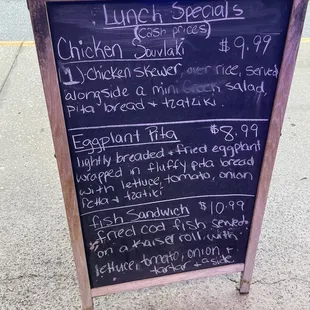 Lunch Specials
(cash prices)
Chicken Souvlaki $9.99
1) chicken skewer, over rice, served
alongside a mini Greek salad,
pita bread + tzatziki.
Eggplant Pita $8.99
lightly breaded + fried eggplant
wrapped in fluffy pita bread
with lettuce, tomato, onion
Fetta + tzatiki
fish Sandwich $10.99
fried cod fish served
on a kaiser roll with
lettuce, tomato, onion +
tartar + aside